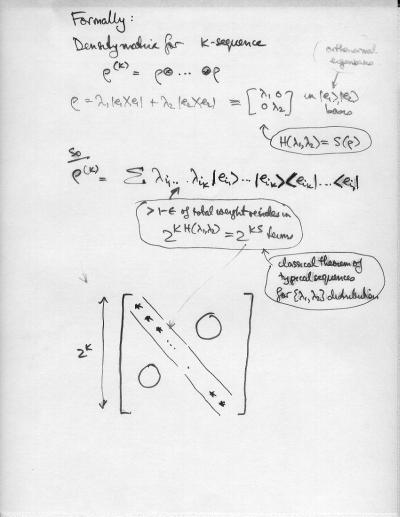 Formally:
Density matrix for K-sequence
(orthonormal
eigenbasis
ρ^(K) = ρ⊗ ... ⊗ρ
ρ = λ₁|e₁⟩⟨e₁| + λ₂|e₂⟩⟨e₂| ≡ [λ₁ 0 in |e₁⟩,|e₂⟩
0 λ₂] basis
H(λ₁,λ₂) = S(ρ)
So
ρ^(K) = Σ λ_i₁ ... λ_iK |e_i₁⟩ ... |e_iK⟩⟨e_iK| ... ⟨e_i₁|
> 1-ε of total weight resides in
2^KH(λ₁,λ₂) = 2^KS terms
classical theorem of
typical sequences
for {λ₁,λ₂} distribution
2^K